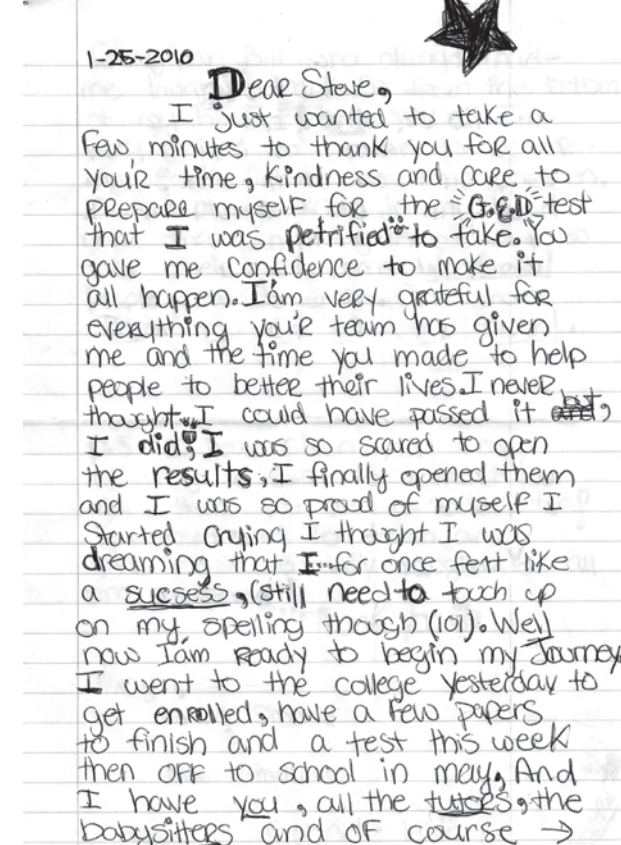 1-25-2010
Dear Steve,
I just wanted to take a
few minutes to thank you for all
you'r time, kindness and care to
prepare myself for the G.E.D test
that I was petrified to take. You
gave me confidence to make it
all happen. I'am very grateful for
everything you'r team has given
me and the time you made to help
people to better their lives. I never
thought I could have passed it but,
I did, I was so scared to open
the results, I finally opened them
and I was so proud of myself I
Started crying I thought I was
dreaming that I for once felt like
a sucsess, (still need to touch up
on my spelling though (101). Well
now I'am ready to begin my Journey
I went to the college yesterday to
get enrolled, have a few papers
to finish and a test this week
then OFF to school in may, And
I have you, all the tutors, the
babysitters and of course →